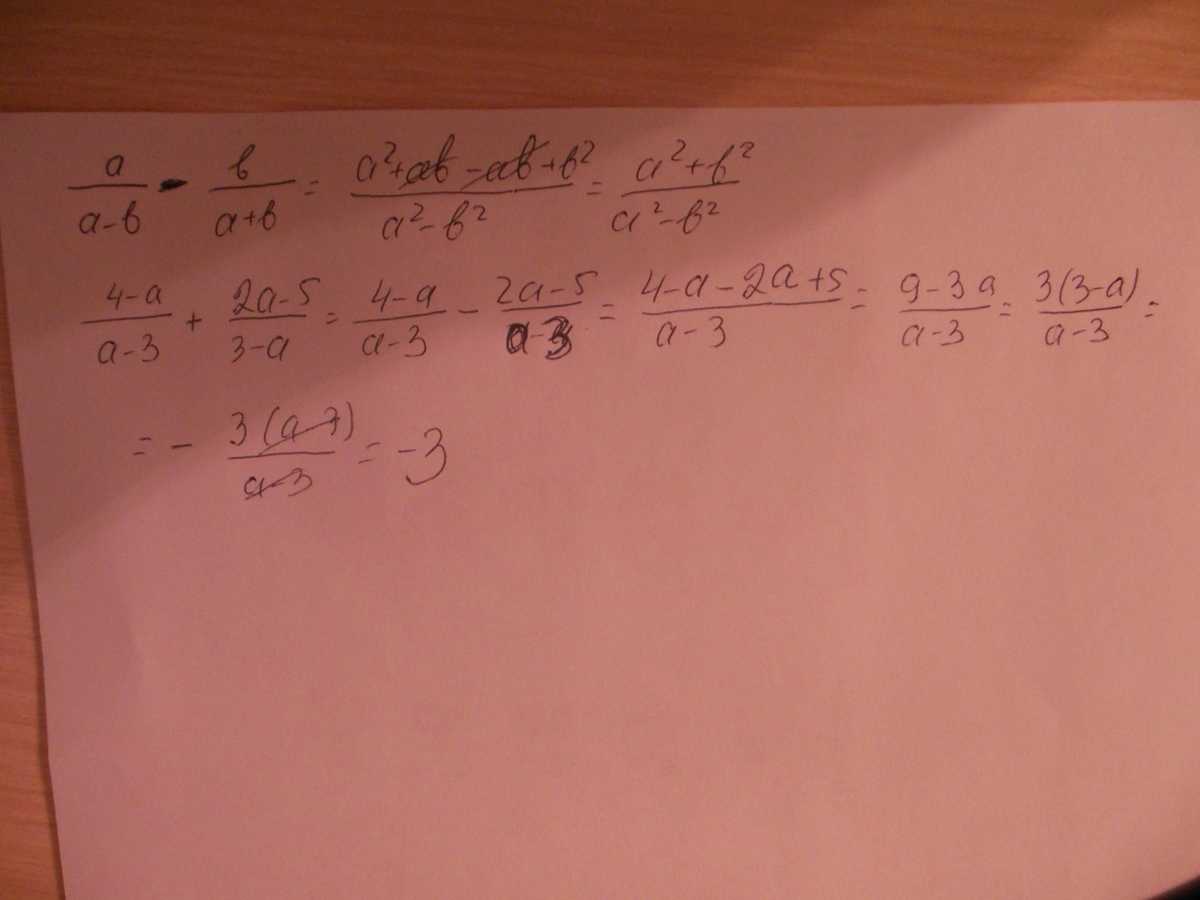 a/(a-b) - b/(a+b) = (a²+ab-ab+b²)/(a²-b²) = (a²+b²)/(a²-b²)
(4-a)/(a-3) + (2a-5)/(3-a) = (4-a)/(a-3) - (2a-5)/(a-3) = (4-a-2a+5)/(a-3) = (9-3a)/(a-3) = 3(3-a)/(a-3) =
= - 3(a-3)/(a-3) = -3